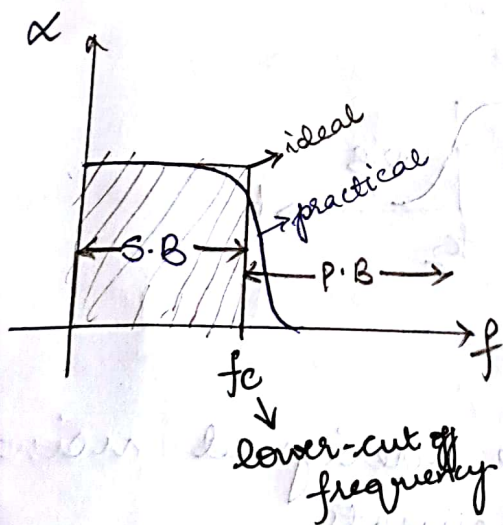 α
ideal
practical
S.B
P.B
f
fc
lower-cut off
frequency